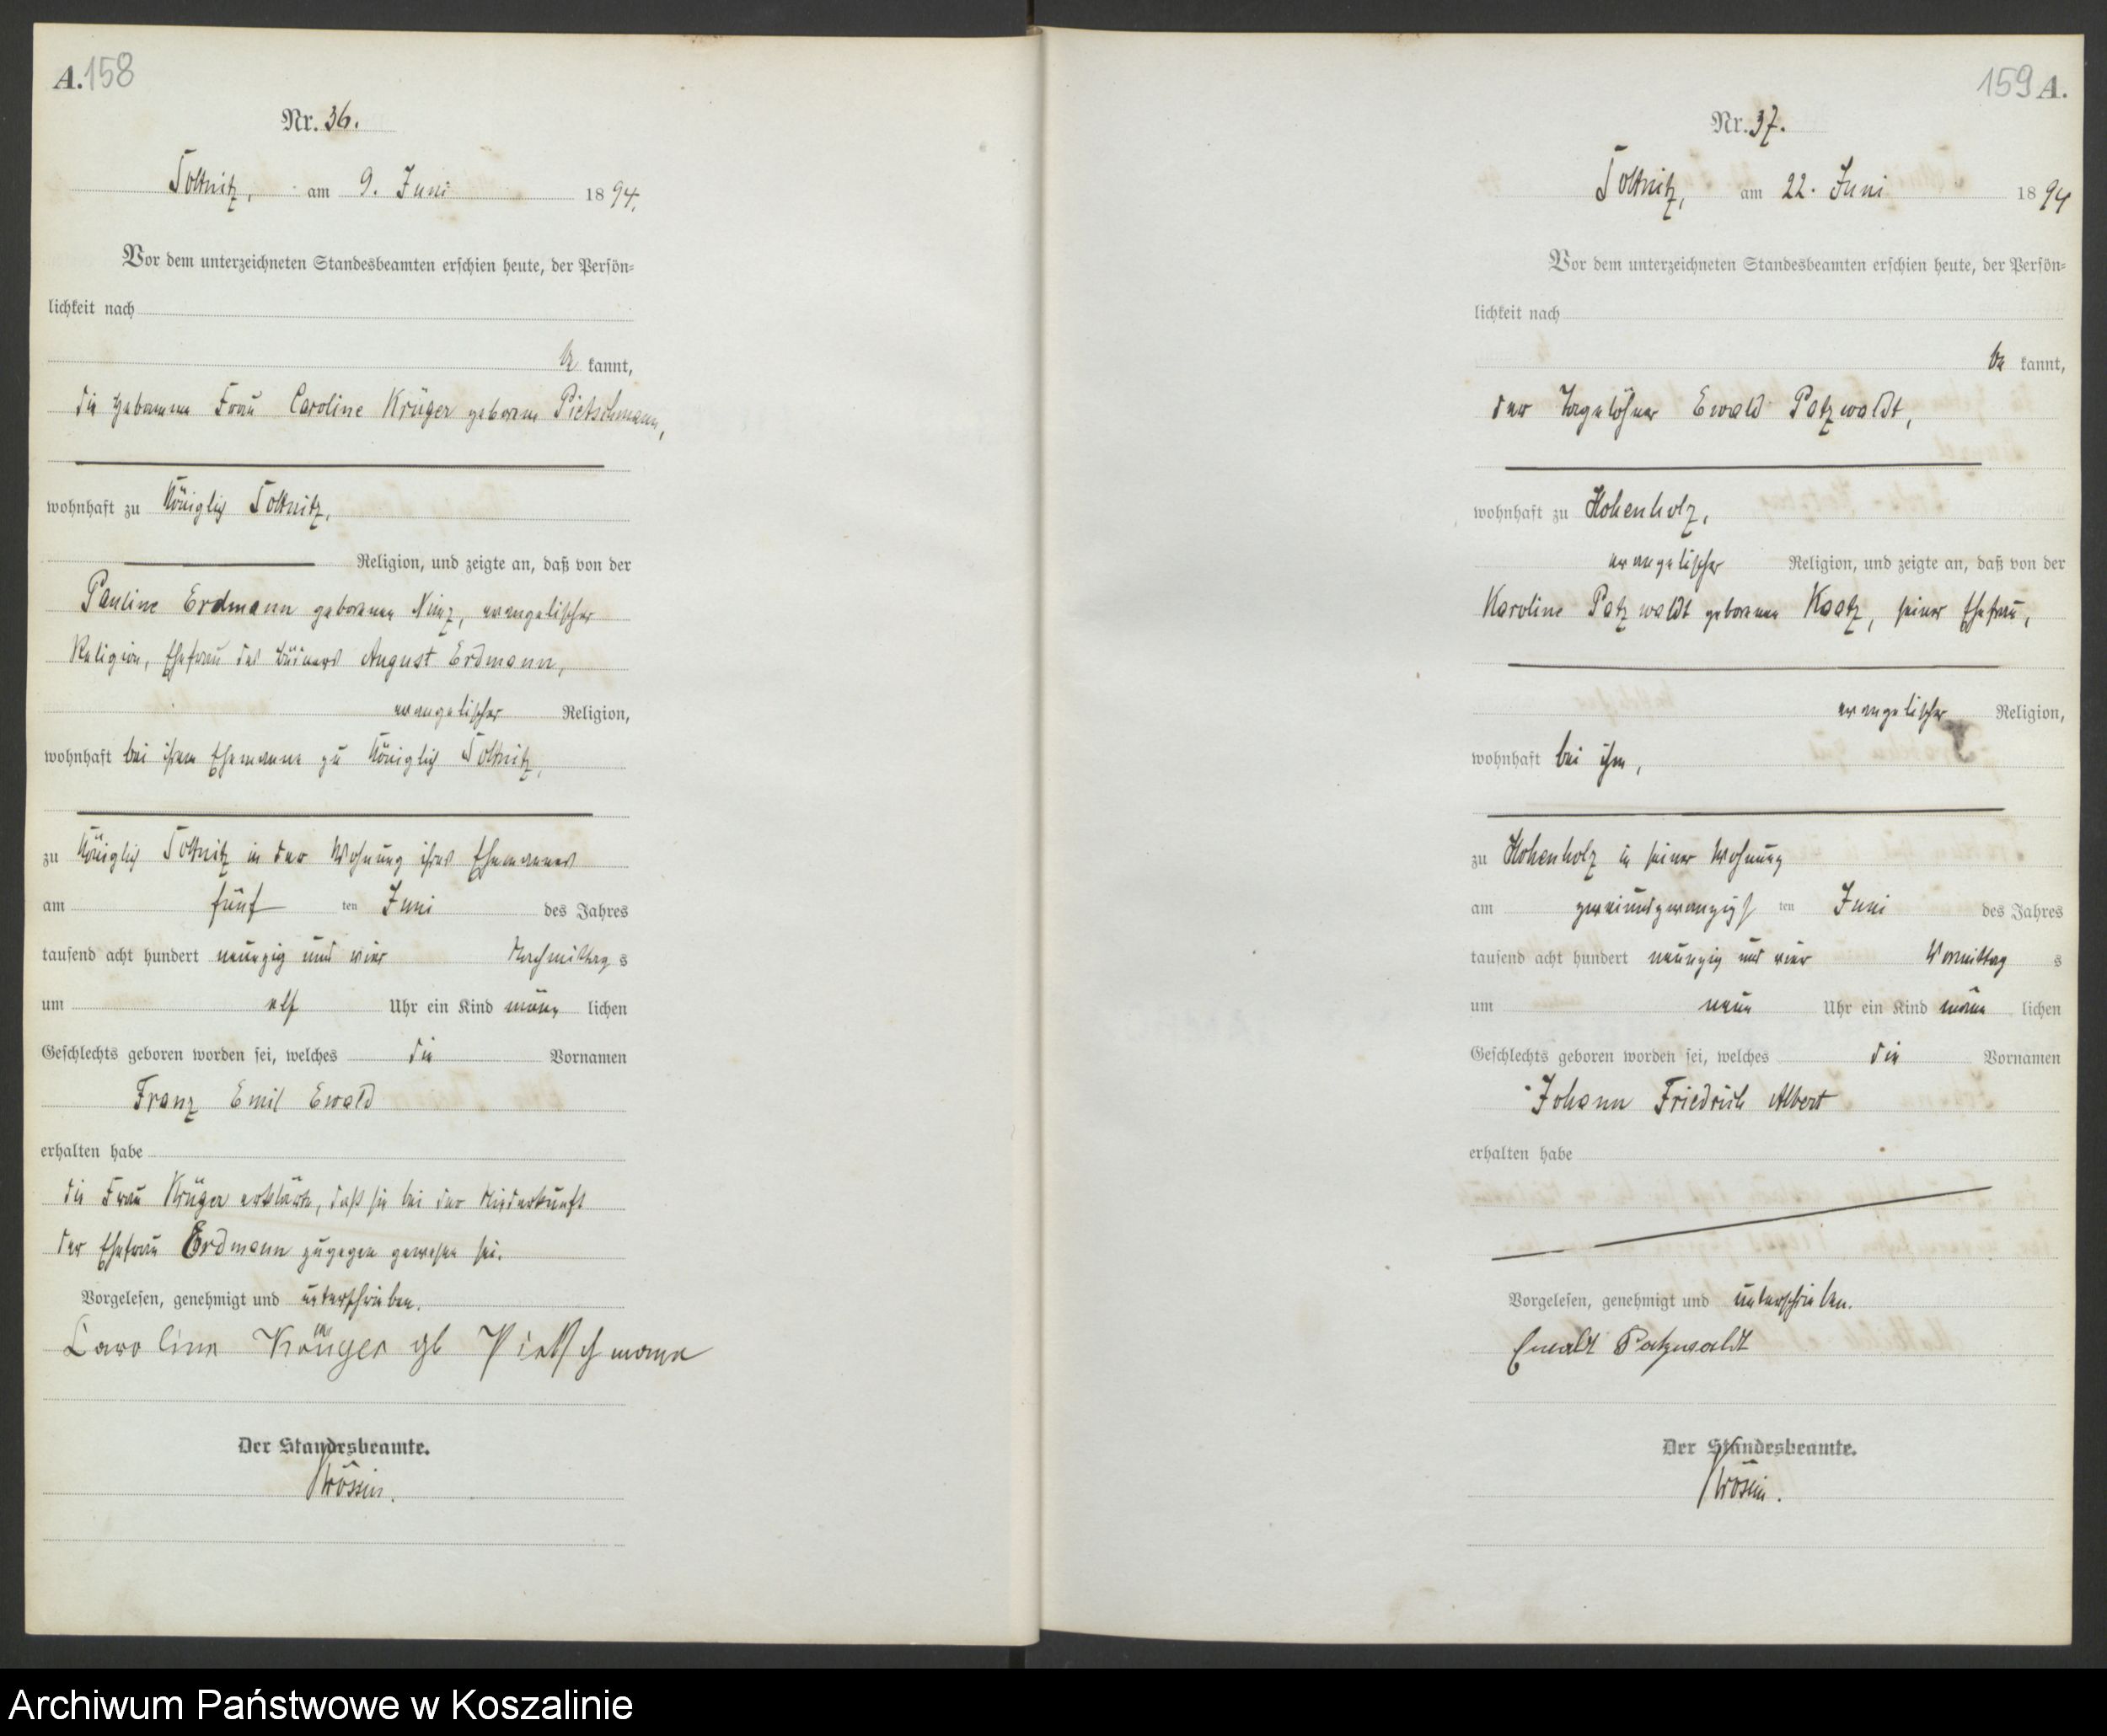 A. 158
Nr. 36.
Soltnitz, am 9. Juni 1894.
Vor dem unterzeichneten Standesbeamten erschien heute, der Persön-
lichkeit nach
be kannt,
die Hebamme Frau Caroline Krüger geborene Pietschmann,
wohnhaft zu Königlich Soltnitz,
Religion, und zeigte an, daß von der
Pauline Erdmann geborenen Ninz, evangelischer
Religion, Ehefrau des Büdners August Erdmann,
evangelischer Religion,
wohnhaft bei ihrem Ehemanne zu Königlich Soltnitz,
zu Königlich Soltnitz in der Wohnung ihres Ehemannes
am fünf ten Juni des Jahres
tausend acht hundert neunzig und vier Nachmittag s
um elf Uhr ein Kind männ lichen
Geschlechts geboren worden sei, welches die Vornamen
Franz Emil Ewald
erhalten habe
die Frau Krüger erklärte, daß sie bei der Niederkunft
der Ehefrau Erdmann zugegen gewesen sei.
Vorgelesen, genehmigt und unterschrieben.
Caroline Krüger gb Pietschmann
Der Standesbeamte.
159 A.
Nr. 37.
Soltnitz, am 22. Juni 1894
Vor dem unterzeichneten Standesbeamten erschien heute, der Persön-
lichkeit nach
be kannt,
der Tagelöhner Ewald Patzwaldt,
wohnhaft zu Hohenholz,
evangelischer Religion, und zeigte an, daß von der
Karoline Patzwaldt geborenen Kaatz, seiner Ehefrau,
evangelischer Religion,
wohnhaft bei ihm,
zu Hohenholz in seiner Wohnung
am zweiundzwanzigs ten Juni des Jahres
tausend acht hundert neunzig und vier Vormittag s
um neun Uhr ein Kind männ lichen
Geschlechts geboren worden sei, welches die Vornamen
Johann Friedrich Albert
erhalten habe
Vorgelesen, genehmigt und unterschrieben.
Ewald Patzwaldt
Der Standesbeamte.
Archiwum Państwowe w Koszalinie